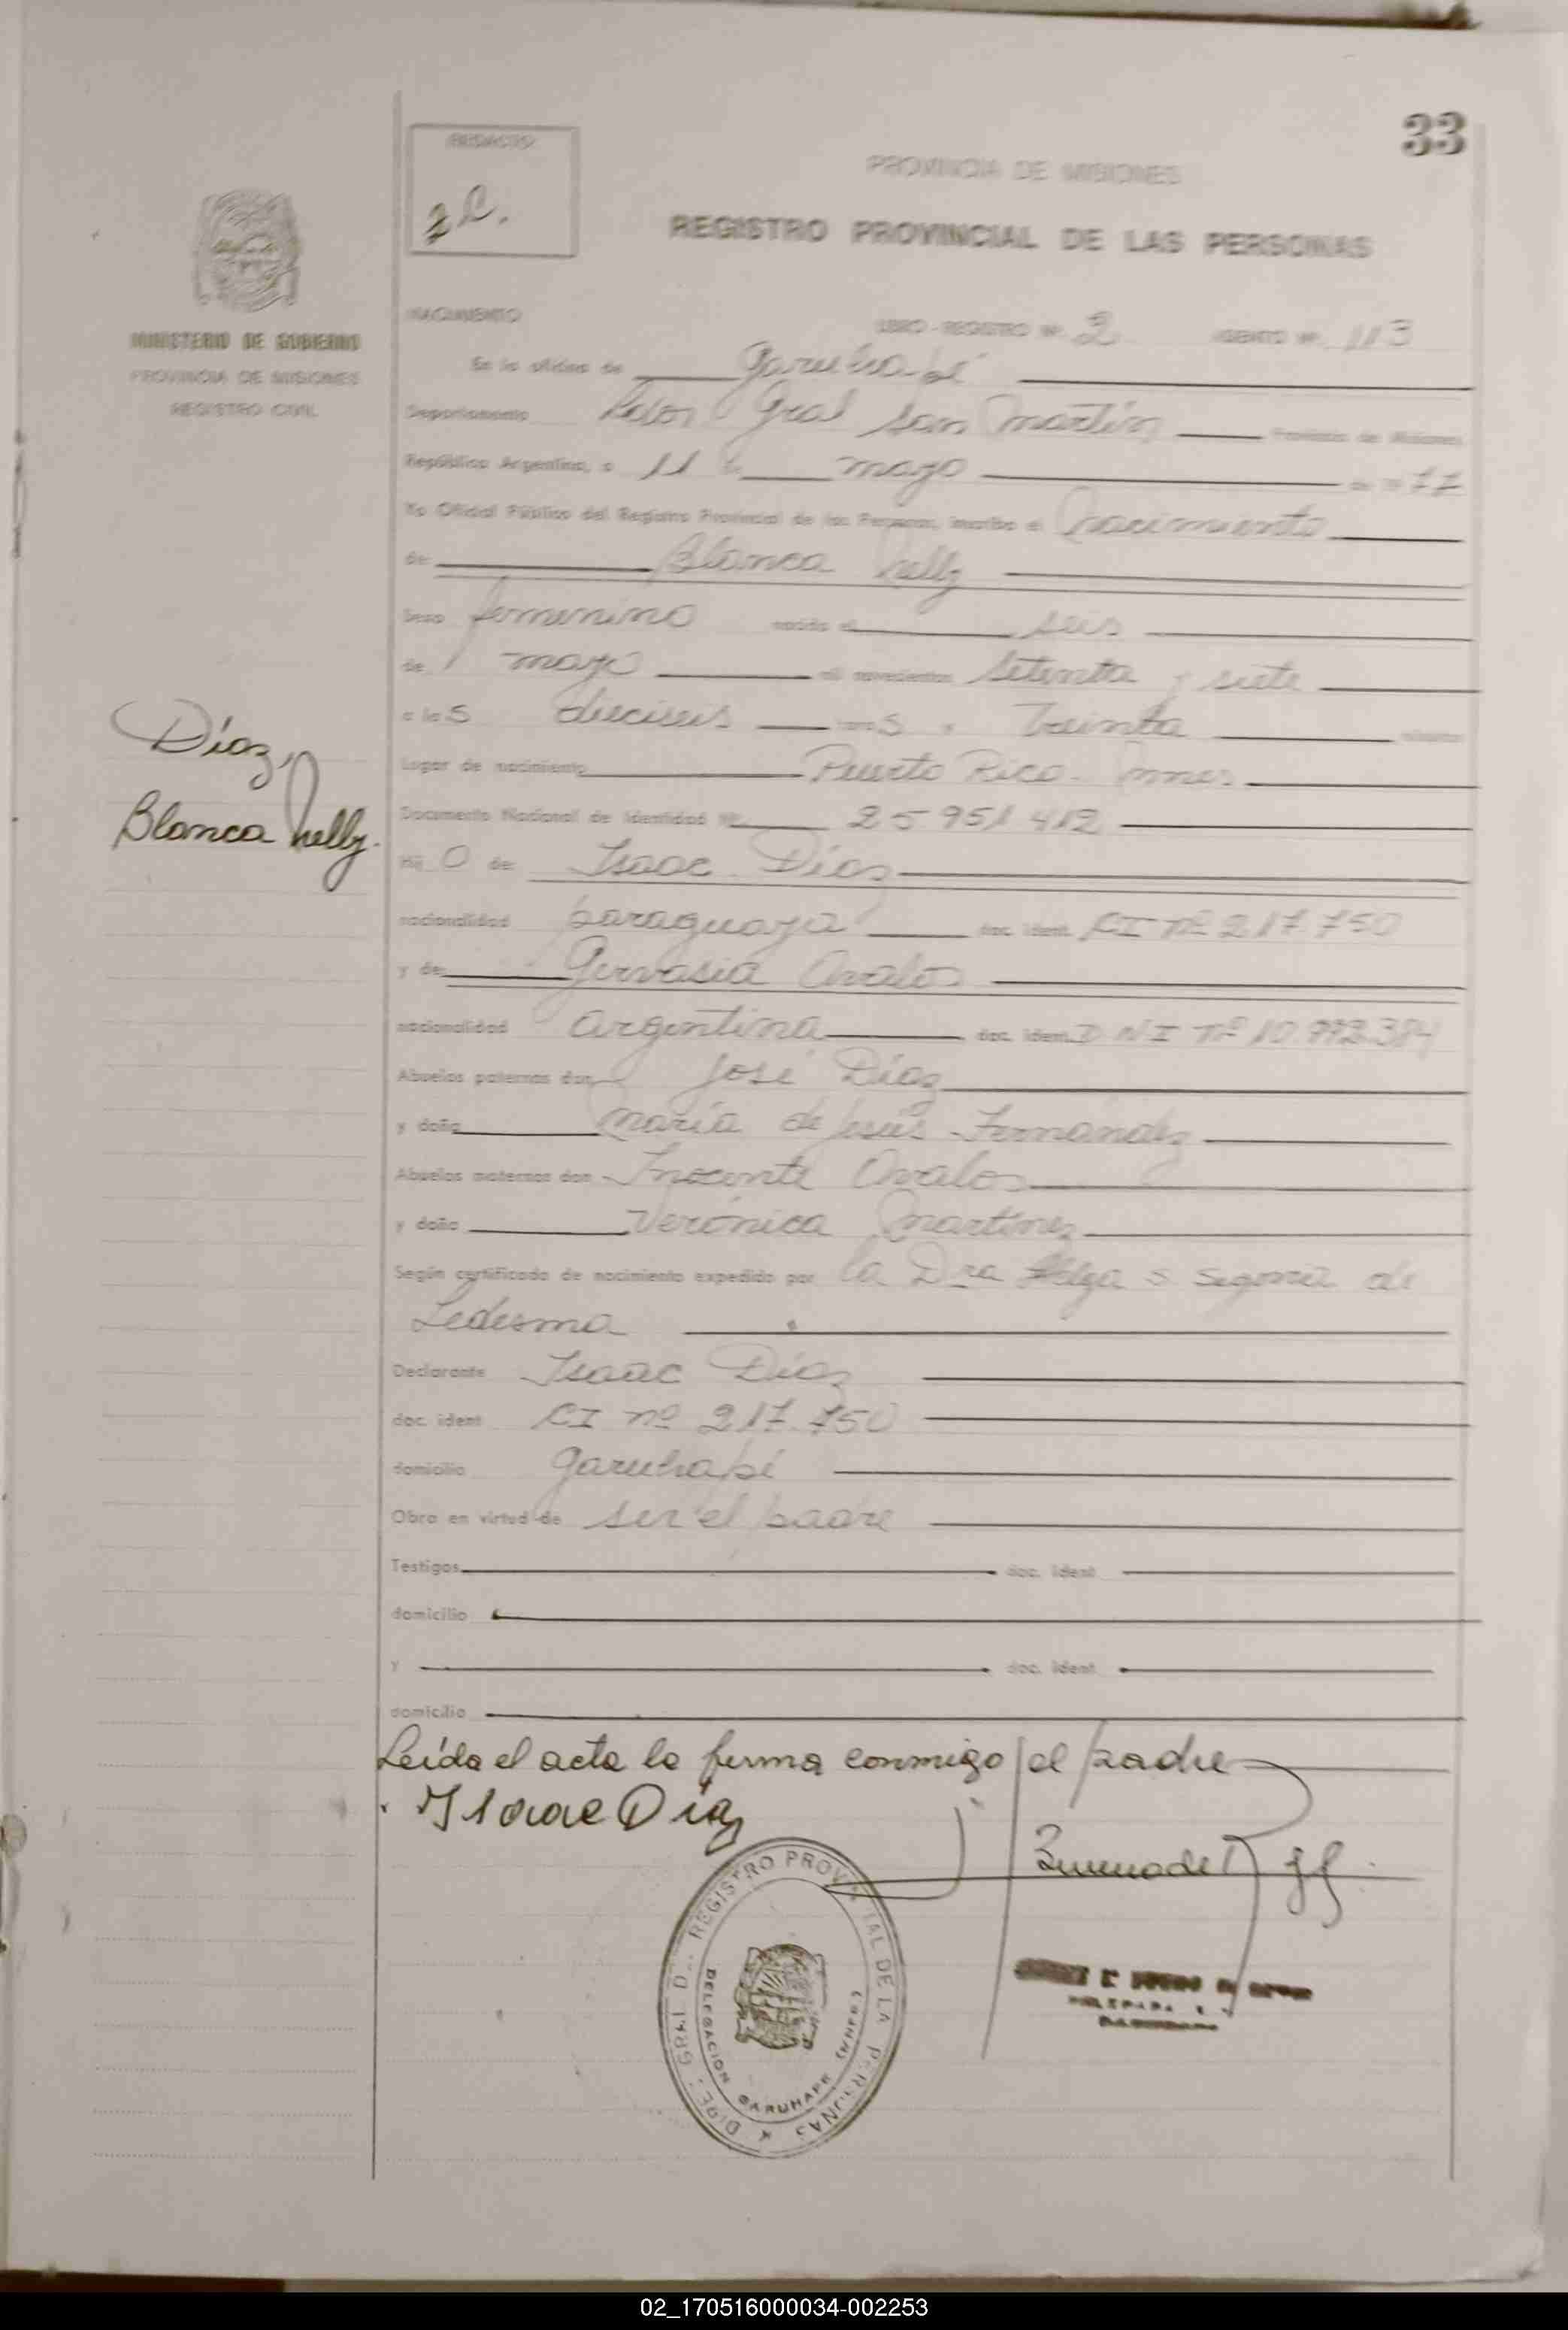 33
REDACTO:
PROVINCIA DE MISIONES
REGISTRO PROVINCIAL DE LAS PERSONAS
MINISTERIO DE GOBIERNO
PROVINCIA DE MISIONES
REGISTRO CIVIL
NACIMIENTO LIBRO - REGISTRO Nº 2 ASIENTO Nº 113
En la oficina de Garuhapé
Departamento Ldor Gral San Martín Provincia de Misiones
República Argentina, a 11 de mayo de 1977
Yo Oficial Público del Registro Provincial de las Personas, inscribo el nacimiento
de Blanca Nelly
Sexo femenino nacido el seis
de mayo mil novecientos setenta y siete
a las dieciseis horas y treinta minutos
Lugar de nacimiento Puerto Rico. Mnes.
Documento Nacional de Identidad Nº 25 951 412
Díaz,
Blanca Nelly.
Hij O de Isaac Díaz
nacionalidad paraguaya doc. ident. CI nº 217.750
y de Gervasia Avalos
nacionalidad argentina doc. ident. D NI nº 10.993.384
Abuelos paternos don José Díaz
y doña María de Jesús Fernández
Abuelos maternos don Inocente Avalos
y doña Verónica Martínez
Según certificado de nacimiento expedido por la Dra Helga S. Segovia de
Ledesma
Declarante Isaac Díaz
doc. ident CI nº 217.750
domicilio Garuhapé
Obra en virtud de ser el padre
Testigos doc. ident
domicilio
y doc. ident
domicilio
Leída el acta la firma conmigo el padre
Isaac Díaz
DIREC. GRAL D REGISTRO PROVINCIAL DE LAS PERSONAS
DELEGACION GARUHAPE (MNES)
02_170516000034-002253